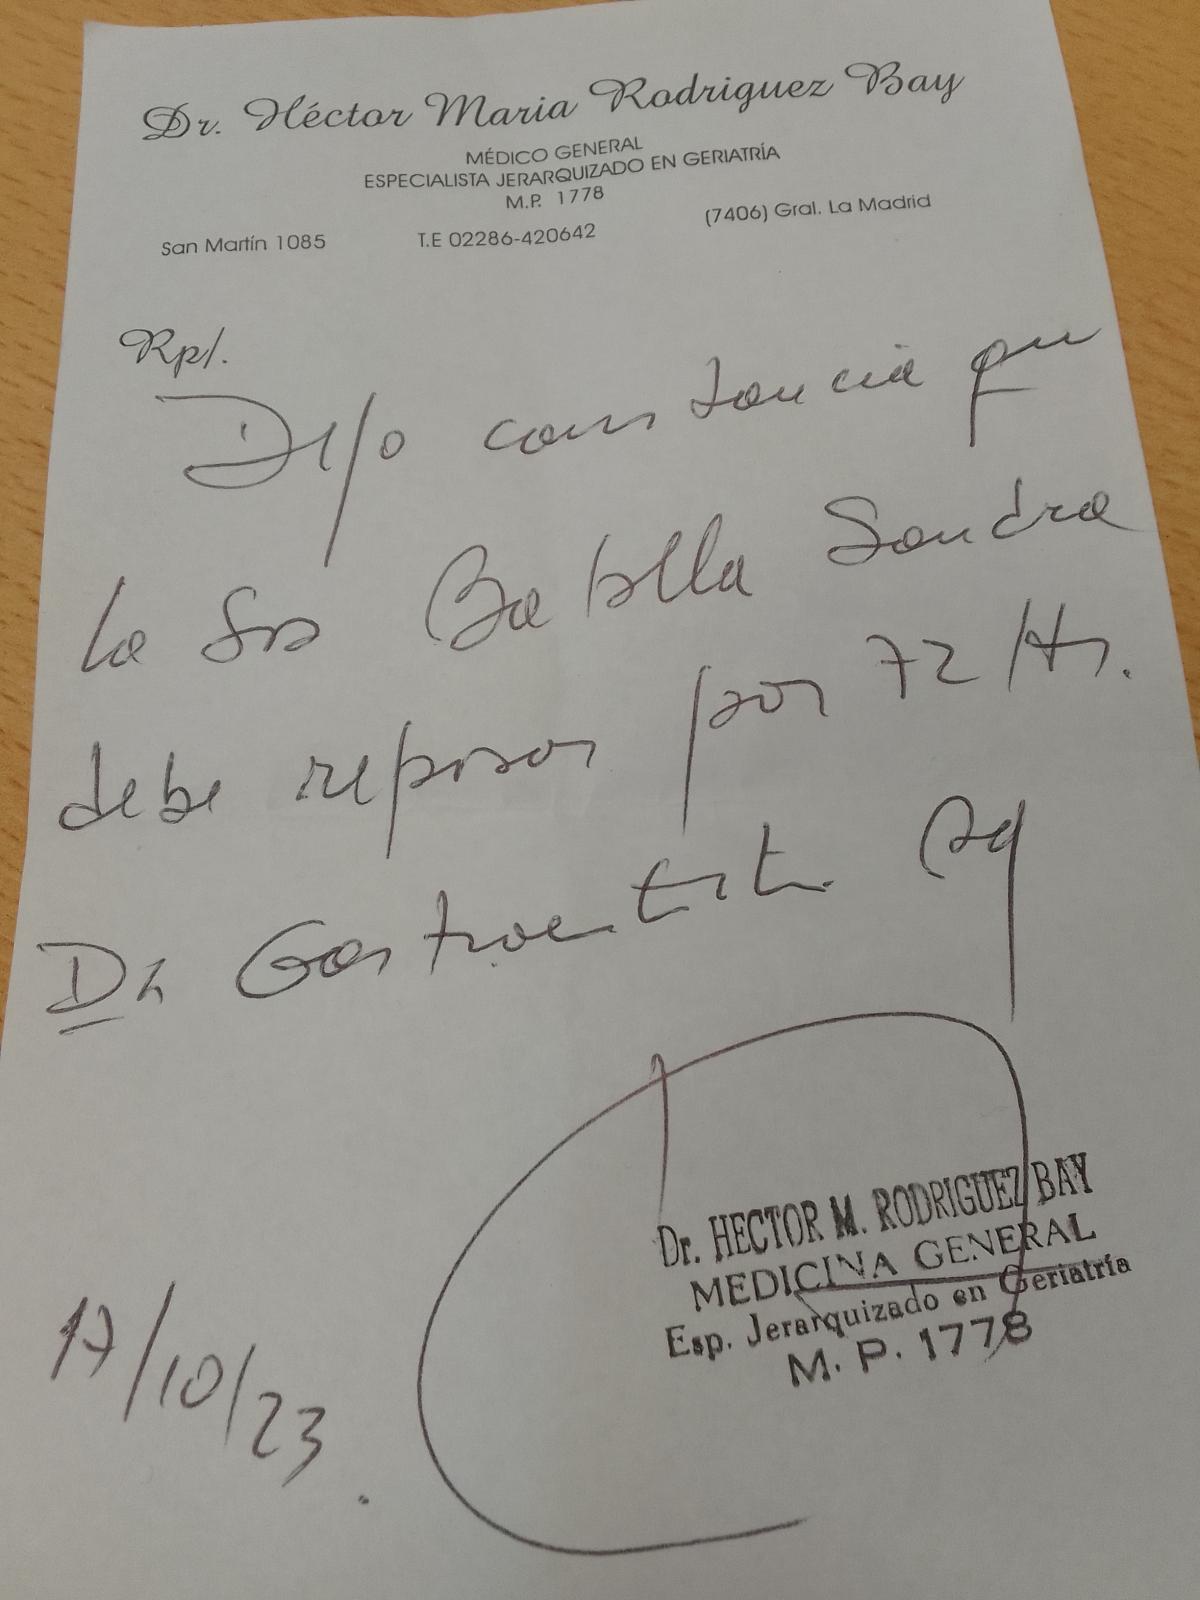 Dr. Héctor Maria Rodriguez Bay
MÉDICO GENERAL
ESPECIALISTA JERARQUIZADO EN GERIATRÍA
M.P. 1778
San Martín 1085 T.E 02286-420642 (7406) Gral. La Madrid
Rp/.
Dejo constancia que
la Sra Batalla Sandra
debe reposar por 72 Hs.
Dx Gastroenteritis ag
Dr. HECTOR M. RODRIGUEZ BAY
MEDICINA GENERAL
Esp. Jerarquizado en Geriatría
M. P. 1778
17/10/23.